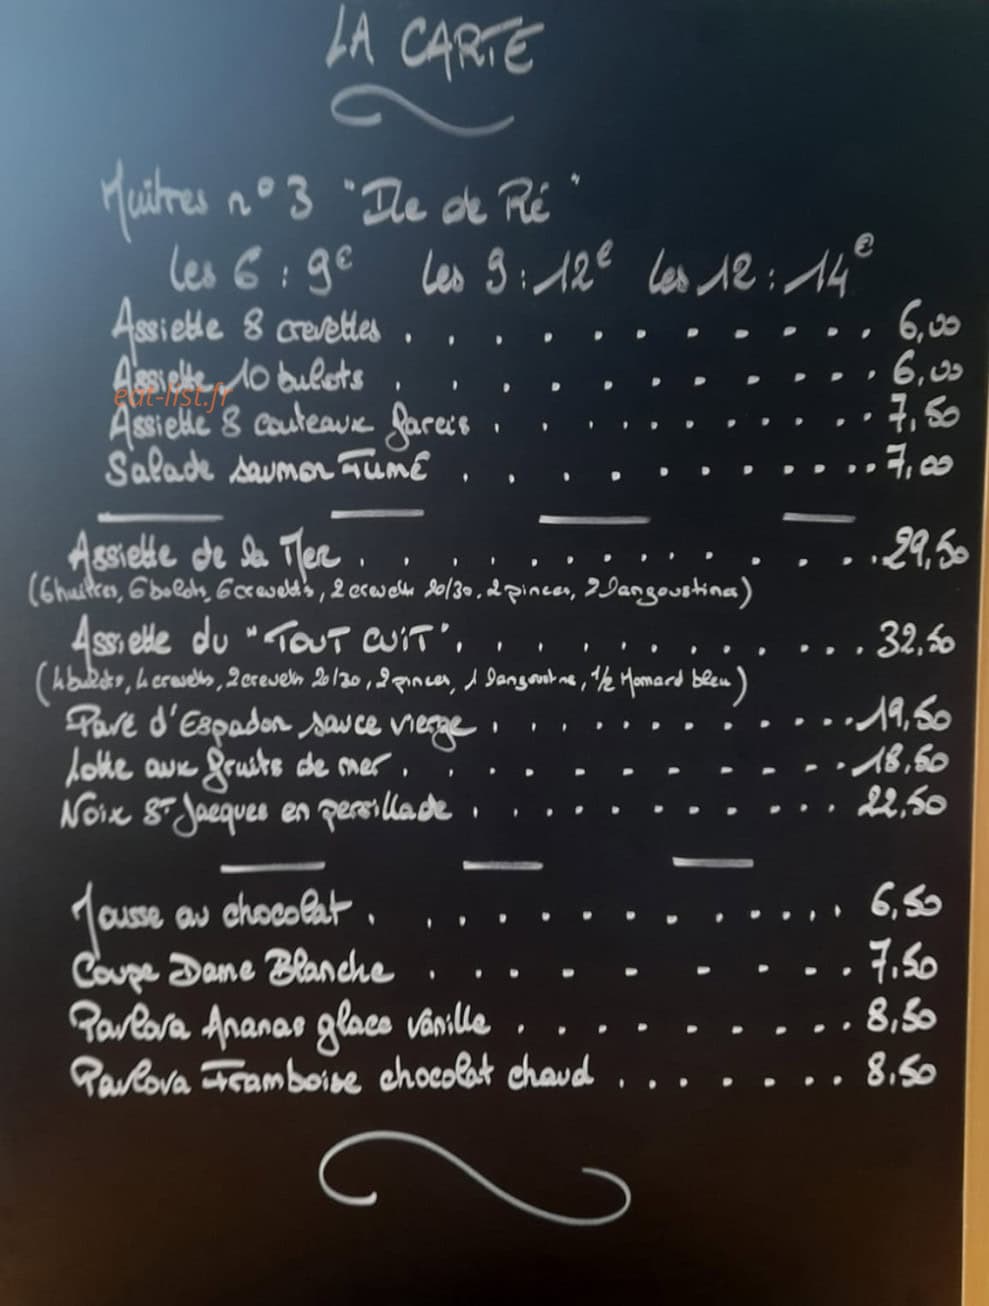 LA CARTE
Huitres n°3 "Ile de Ré"
les 6 : 9€ les 9 : 12€ les 12 : 14€
Assiette 8 crevettes . . . . . . . . . . . 6,00
Assiette 10 bulots . . . . . . . . . . . 6,00
eat-list.fr
Assiette 8 couteaux farcis . . . . . . . . . . 7,50
Salade saumon Fumé . . . . . . . . . . . 7,00
Assiette de la Mer . . . . . . . . . . . . 29,50
(6 huitres, 6 bulots, 6 crevettes, 2 crevette 20/30, 2 pinces, 2 langoustina)
Assiette du "TOUT CUIT" . . . . . . . . . . . 32,50
(4 bulots, 4 crevettes, 2 crevette 20/30, 2 pinces, 1 langoustine, 1/2 Homard bleu)
Pavé d'Espadon sauce vierge . . . . . . . . . . . 19,50
Lotte aux fruits de mer . . . . . . . . . . . 18,50
Noix St Jacques en persillade . . . . . . . . . . . 22,50
Mousse au chocolat . . . . . . . . . . . . 6,50
Coupe Dame Blanche . . . . . . . . . 7,50
Pavlova Ananas glace vanille . . . . . . . . . . 8,50
Pavlova Framboise chocolat chaud . . . . . . . . 8,50